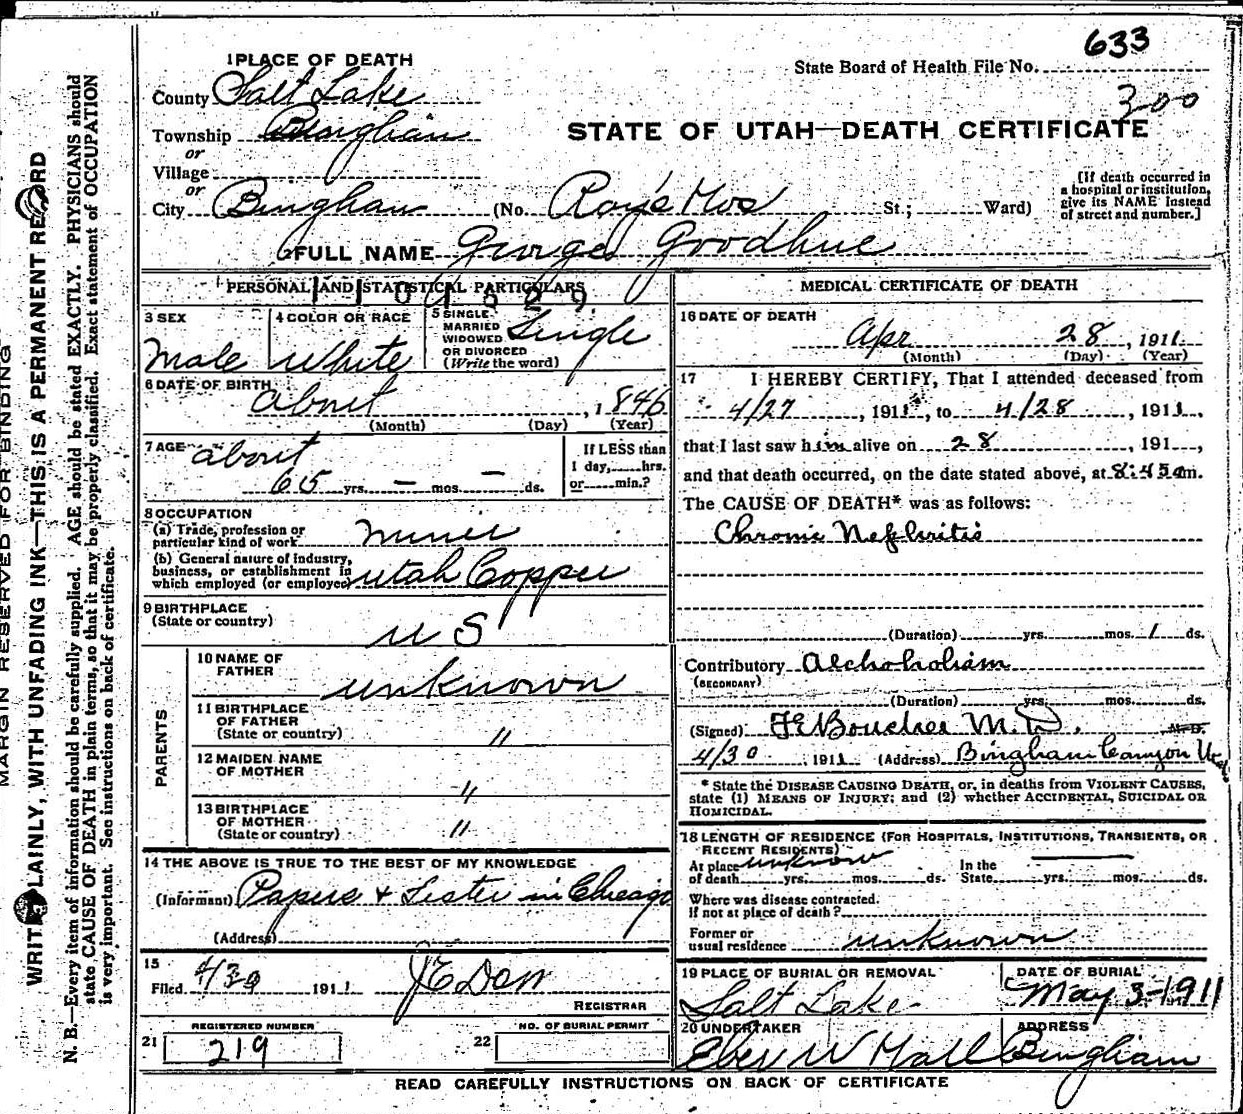 633
State Board of Health File No.
300
1 PLACE OF DEATH
County Salt Lake
Township Bingham
or
Village
or
City Bingham (No. Roy's Hos St.; Ward)
STATE OF UTAH—DEATH CERTIFICATE
[If death occurred in
a hospital or institution,
give its NAME instead
of street and number.]
2 FULL NAME George Goodhue
PERSONAL AND STATISTICAL PARTICULARS
3 SEX
Male
4 COLOR OR RACE
White
5 SINGLE
MARRIED
WIDOWED
OR DIVORCED
(Write the word)
Single
6 DATE OF BIRTH
about , 1846
(Month) (Day) (Year)
7 AGE about
65 yrs. — mos. — ds.
If LESS than
1 day, hrs.
or min.?
8 OCCUPATION
(a) Trade, profession or
particular kind of work miner
(b) General nature of industry,
business, or establishment in
which employed (or employer) Utah Copper
9 BIRTHPLACE
(State or country)
U S
PARENTS
10 NAME OF
FATHER
unknown
11 BIRTHPLACE
OF FATHER
(State or country) "
12 MAIDEN NAME
OF MOTHER
"
13 BIRTHPLACE
OF MOTHER
(State or country) "
14 THE ABOVE IS TRUE TO THE BEST OF MY KNOWLEDGE
(Informant) Papers & Sister in Chicago
(Address)
15
Filed 4/30 1911 J E Dorr
REGISTRAR
REGISTERED NUMBER
21 219
NO. OF BURIAL PERMIT
22
MEDICAL CERTIFICATE OF DEATH
16 DATE OF DEATH
Apr 28, 1911
(Month) (Day) (Year)
17 I HEREBY CERTIFY, That I attended deceased from
4/27, 1911, to 4/28, 1911,
that I last saw him alive on 28, 191 ,
and that death occurred, on the date stated above, at 8:45 am.
The CAUSE OF DEATH* was as follows:
Chronic Nephritis
(Duration) yrs. mos. 1 ds.
Contributory Alchoholism
(SECONDARY)
(Duration) yrs. mos. ds.
(Signed) F E Boucher M.D. M.D.
4/30, 1911 (Address) Bingham Canyon Utah
* State the DISEASE CAUSING DEATH, or, in deaths from VIOLENT CAUSES,
state (1) MEANS OF INJURY; and (2) whether ACCIDENTAL, SUICIDAL OR
HOMICIDAL.
18 LENGTH OF RESIDENCE (FOR HOSPITALS, INSTITUTIONS, TRANSIENTS, OR
RECENT RESIDENTS)
At place unknown In the
of death yrs. mos. ds. State yrs. mos. ds.
Where was disease contracted.
If not at place of death?
Former or
usual residence unknown
19 PLACE OF BURIAL OR REMOVAL
Salt Lake
DATE OF BURIAL
May 3-1911
20 UNDERTAKER
Eber W Hall
ADDRESS
Bingham
READ CAREFULLY INSTRUCTIONS ON BACK OF CERTIFICATE
MARGIN RESERVED FOR BINDING
WRITE PLAINLY, WITH UNFADING INK—THIS IS A PERMANENT RECORD
N. B.—Every item of information should be carefully supplied. AGE should be stated EXACTLY. PHYSICIANS should
state CAUSE OF DEATH in plain terms, so that it may be properly classified. Exact statement of OCCUPATION
is very important. See instructions on back of certificate.